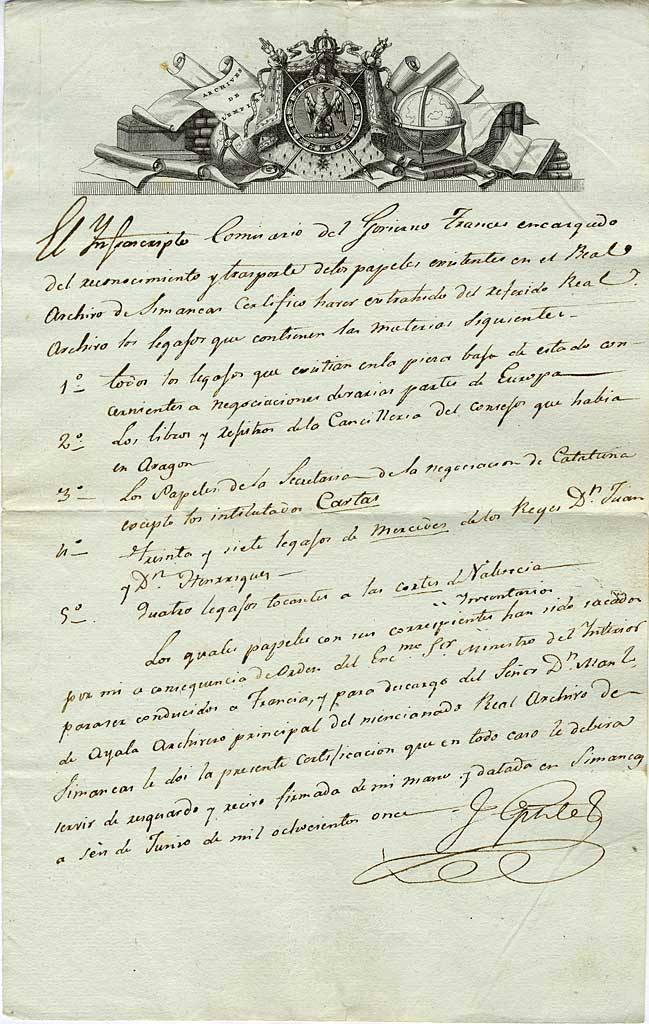 ARCHIVES
DE
L'EMPIRE
El Ynfrascripto Comisario del Govierno Frances encargado
del reconocimiento y trasporte de los papeles existentes en el Real
Archivo de Simancas Certifico haver extrahido del referido Real
Archivo los legajos que contienen las materias siguientes.
1º todos los legajos que existian en la pieza baja de estado con-
cernientes a negociaciones de varias partes de Europa
2º Los libros y registros de la Cancilleria del consejos que habia
en Aragon
3º Los Papeles de la Secretaria de la negociacion de Cataluña
excepto los intitulados Cartas
4º treinta y siete legajos de Mercedes de los Reyes Dn Juan
y Dn Henrriques
5º. quatro legajos tocantes a las cortes de Valencia
Los quales papeles con sus correspientes Inventarios han sido sacados
por mi a consequencia de Orden del Excmo Sor Ministro del Interior
para ser conducidos a Francia, y para descargo del Señor Dn Manl
de Ayala Archivero principal del mencionado Real Archivo de
Simancas le doi la presente certificacion que en todo caso le debera
servir de resguardo y recivo firmada de mi mano y datada en Simancas
a seis de Junio de mil ochocientos once